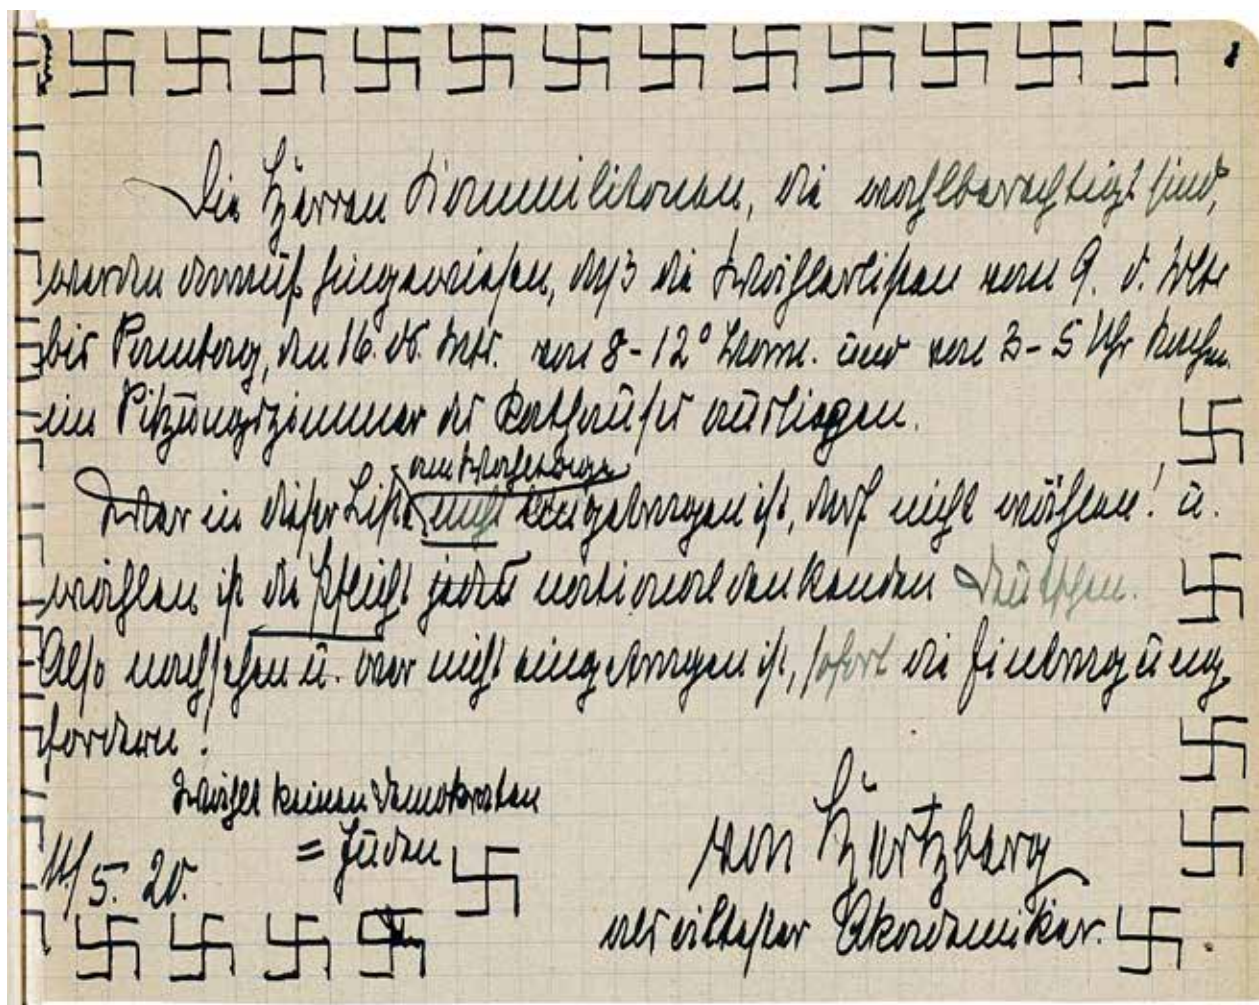 1
Die Herren Kommilitonen, die wahlberechtigt sind,
werden darauf hingewiesen, daß die Wählerlisten vom 9. d. Mts
bis Sonntag, den 16. ds. Mts. von 8-12° Vorm. und von 3-5 Uhr Nachm.
im Sitzungszimmer des Rathauses ausliegen.
am Wahltage
Wer in dieser Liste nicht eingetragen ist, darf nicht wählen! u.
wählen ist die Pflicht jedes national denkenden Deutschen.
Also nachsehen u. wer nicht eingetragen ist, sofort die Eintragung
fordern!
Wählt keinen Demokraten
= Juden
11/5. 20.
von Hertzberg
als ältester Akademiker.